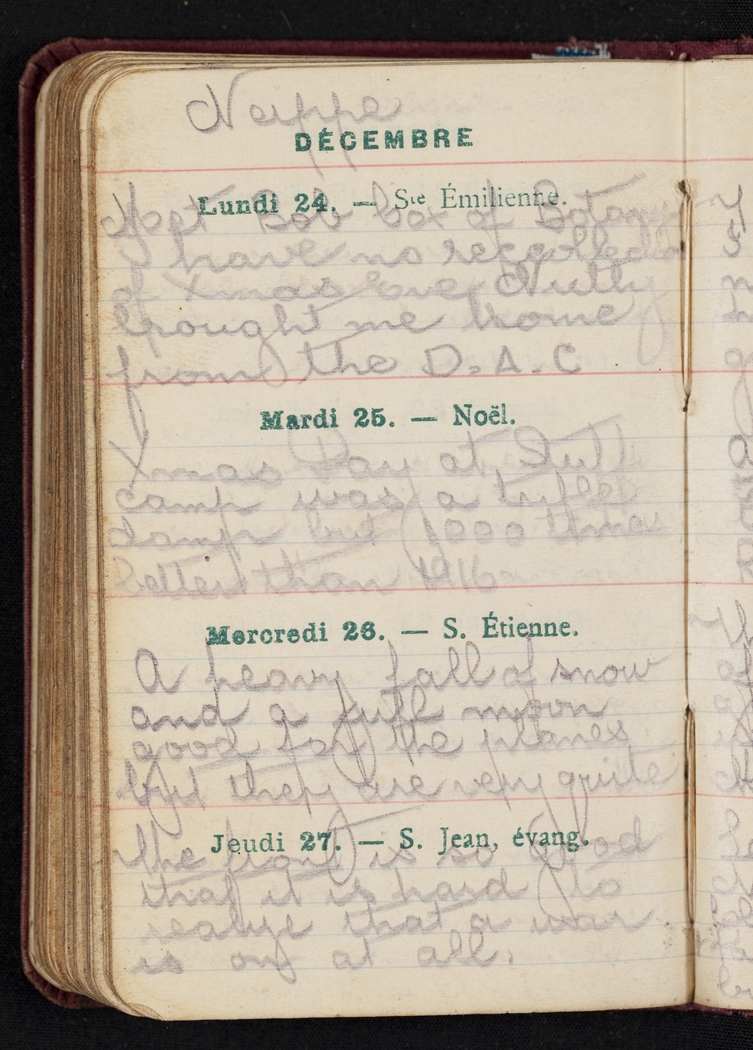 Neippe
DÉCEMBRE
Lundi 24. — Ste Émilienne.
Bob box of Botany
I have no recollection
of Xmas eve, Nutty
brought me home
from the D.A.C
Mardi 25. — Noël.
Xmas Day at
camp was a trifle
damp but 1000 times
better than 1916
Mercredi 26. — S. Étienne.
A heavy fall of snow
and a full moon
good for the planes
but they are very quite
Jeudi 27. — S. Jean, évang.
The is so good
that it is hard to
realize that a war
is on at all.